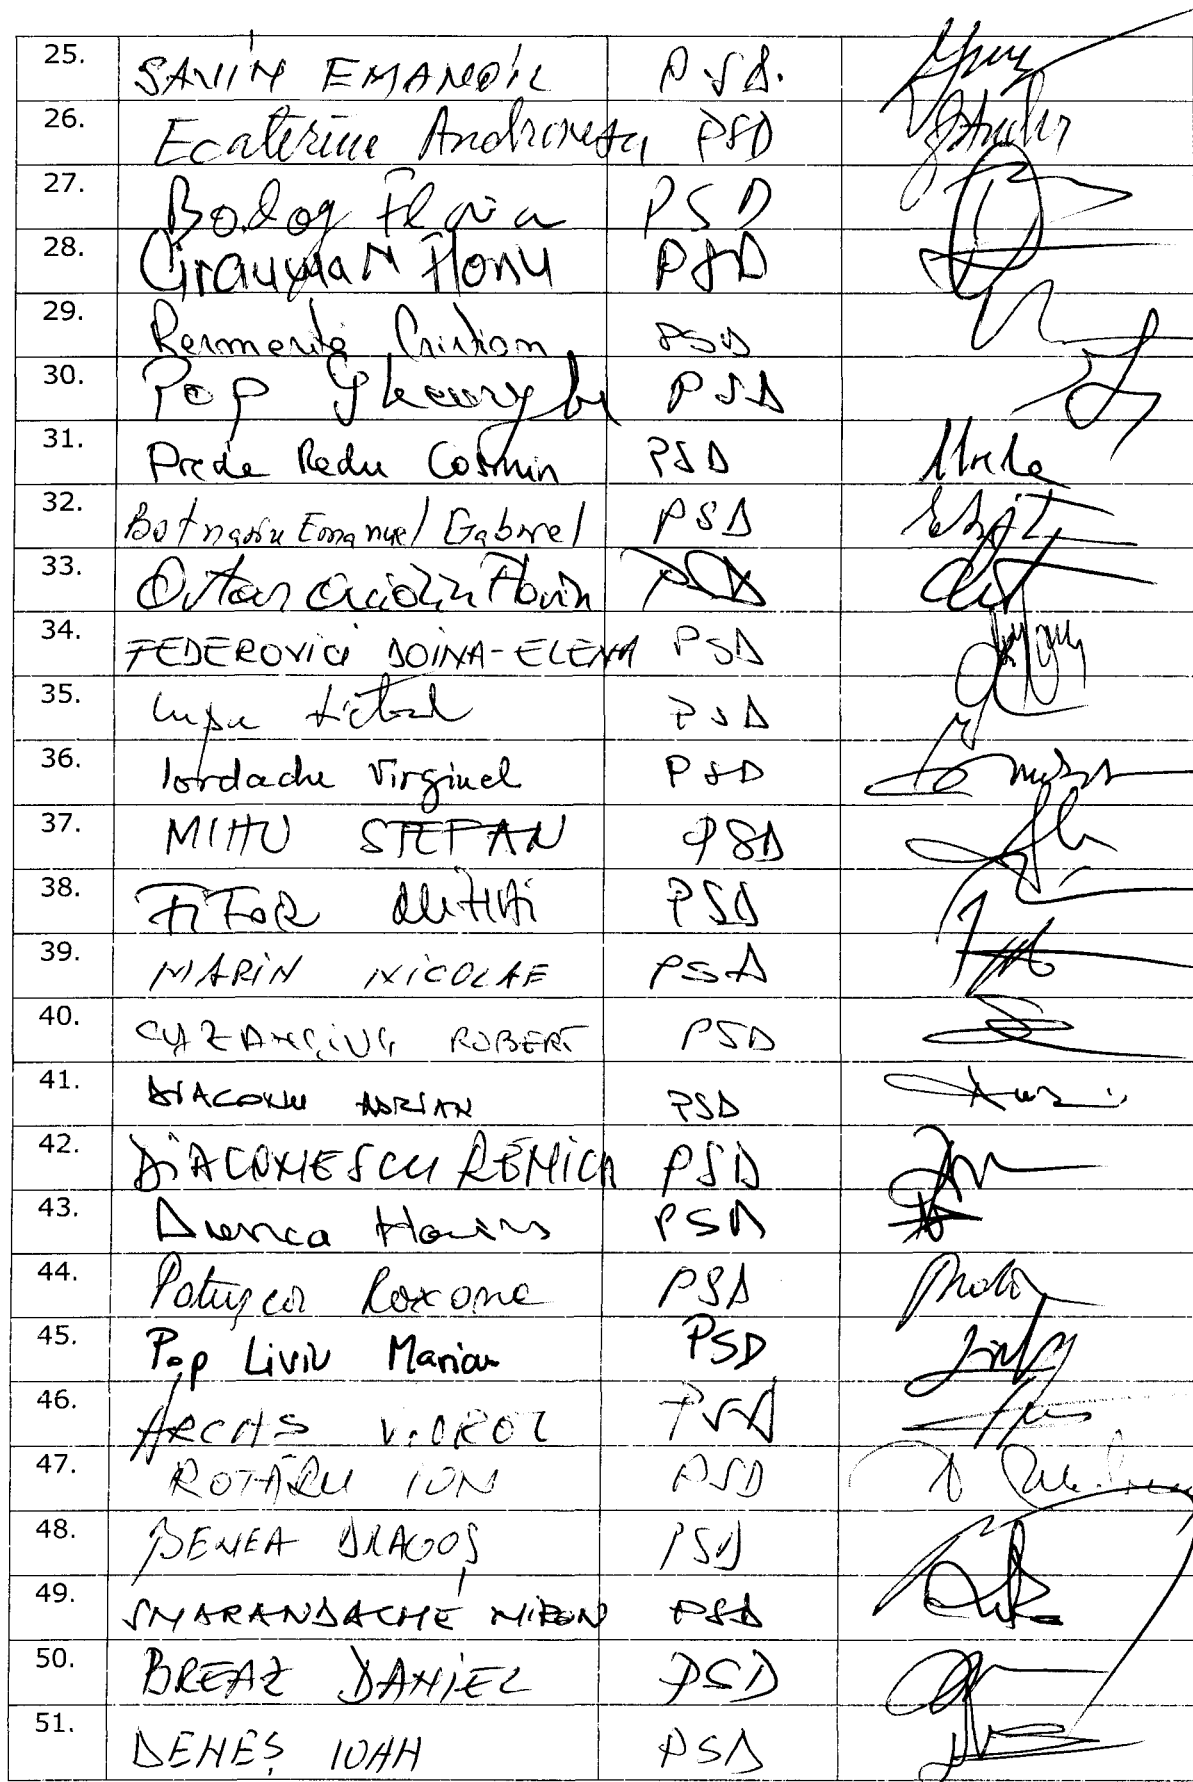 25. SAVIN EMANOIL PSD.
26. Ecaterina Andronescu PSD
27. Bodog Florian PSD
28. PSD
29. Resmeriță Cristian PSD
30. Pop Gheorghe PSD
31. Preda Radu Cosmin PSD
32. Botnariu Emanuel Gabriel PSD
33. Florin
34. FEDEROVICI DOINA-ELENA PSD
35. Lupu Victor PSD
36. Iordache Virginel PSD
37. MIHU STEFAN PSD
38. FIFOR MIHAI PSD
39. MARIN NICOLAE PSD
40. ROBERT PSD
41. DIACONU ADRIAN PSD
42. DIACONESCU RENICA PSD
43. PSD
44. Pațurcă Roxana PSD
45. Pop Liviu Marian PSD
46. ARCAȘ VIOREL PSD
47. ROTARU ION PSD
48. BENEA DRAGOȘ PSD
49. SMARANDACHE MIRON PSD
50. BREAZ DANIEL PSD
51. DENEȘ IOAN PSD